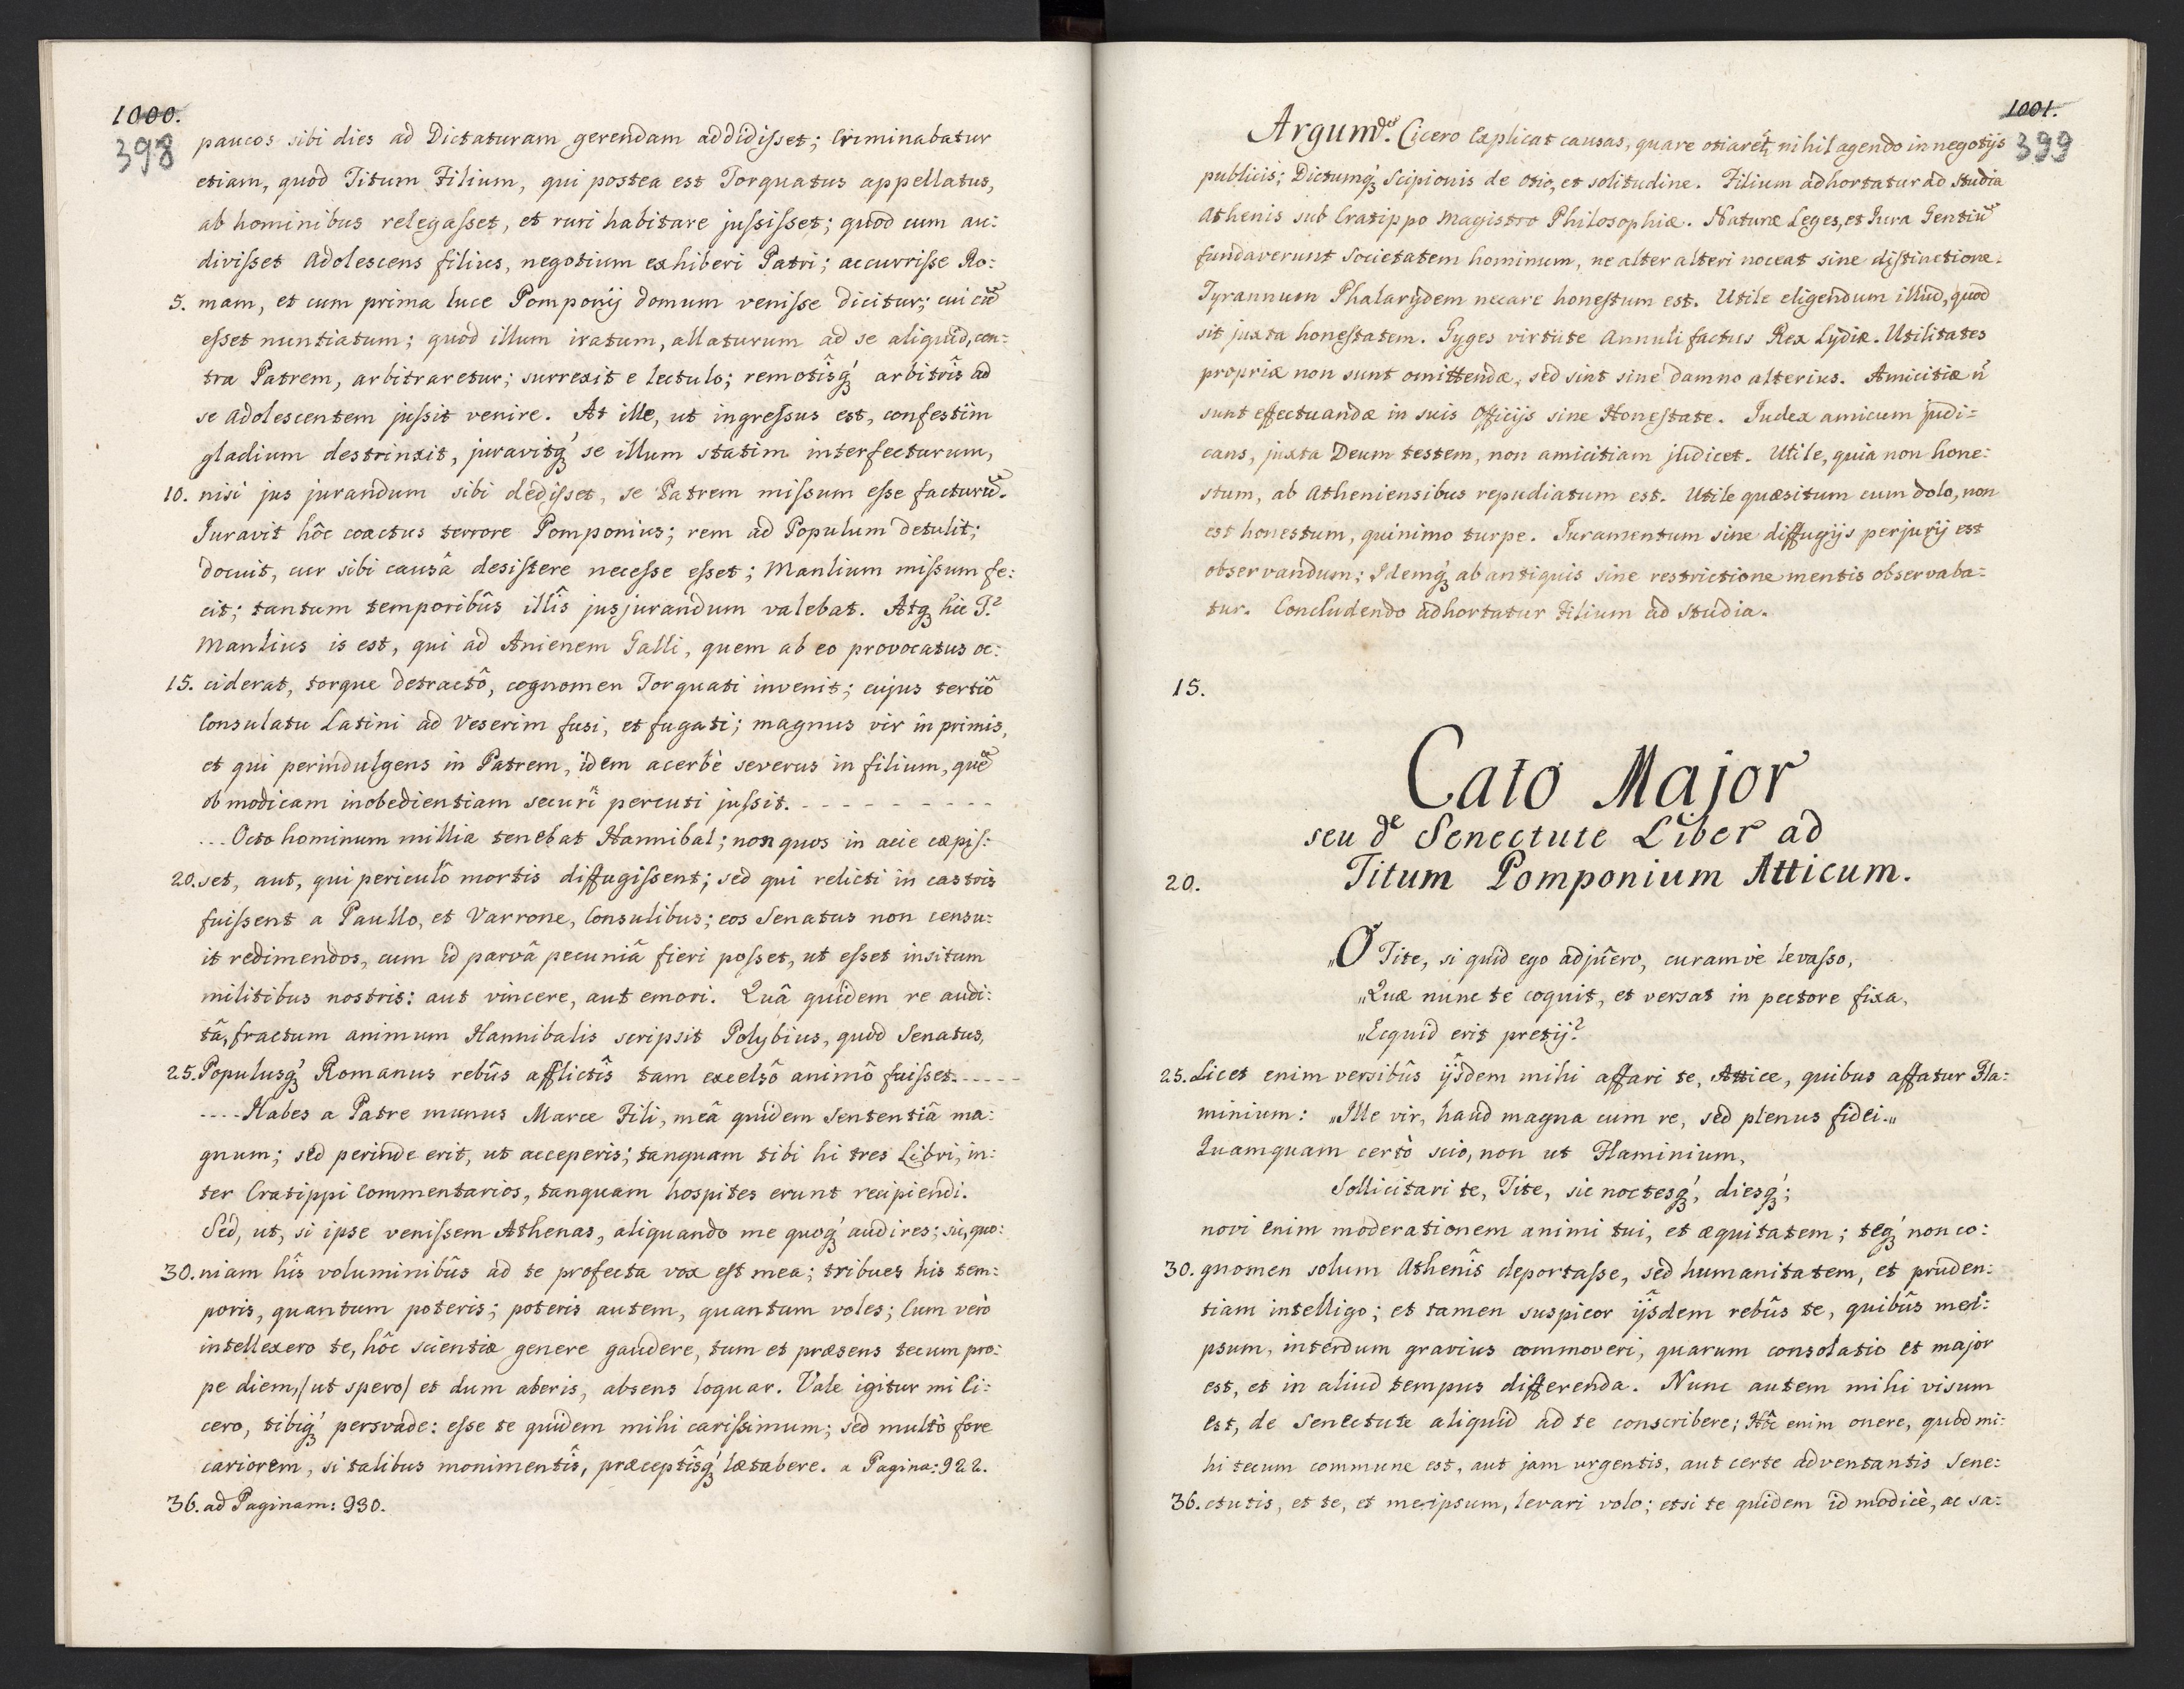 1000.
398
paucos sibi dies ad Dictaturam gerendam addidisset; Criminabatur
etiam, quod Titum Filium, qui postea est Torquatus appellatus,
ab hominibus relegasset, et ruri habitare jussisset; quod cum au:
divisset Adolescens filius, negotium exhiberi Patri; accurrisse Ro:
5. mam, et cum prima luce Pomponij domum venisse dicitur; cui cū
esset nuntiatum; quod illum iratum, allaturum ad se aliquid, con:
tra Patrem, arbitraretur; surrexit e lectulo; remotîsq́ꝫ arbitrîs ad
se Adolescentem jussit venire. At ille, ut ingressus est, confestim
gladium destrinxit, juravitq́ꝫ se illum statim interfecturum,
10. nisi jus jurandum sibi dedisset, se Patrem missum esse facturū.
Juravit hôc coactus terrore Pomponius; rem ad Populum detulit;
docuit, cur sibi causâ desistere necesse esset; Manlium missum fe:
cit; tantum temporibûs illîs jusjurandum valebat. Atqꝫ hic T.
Manlius is est, qui ad Anienem Galli, quem ab eo provocatus oc:
15. ciderat, torque detractô, cognomen Torquati invenit; cujus tertiô
Consulatu Latini ad Veserim fusi, et fugati; magnus vir in primis,
et qui perindulgens in Patrem, idem acerbè severus in filium, quē
ob modicam inobedientiam securi percuti jussit. - - - - - - - - -
... Octo hominum millia tenebat Hannibal; non quos in acie cæpis:
20. set, aut, qui periculô mortis diffugissent; sed qui relicti in castris
fuissent a Paullo, et Varrone, Consulibus; eos Senatus non censu:
it redimendos, cum id parvâ pecuniâ fieri posset, ut esset insitum
militibus nostris: aut vincere, aut emori. Quâ quidem re audi:
tâ, fractum animum Hannibalis scripsit Polybius, quod Senatus,
25. Populusq́ꝫ Romanus rebûs afflictîs tam excelsô animô fuisset. - - - - -
- - - - Habes a Patre munus Marce Fili, meâ quidem Sententiâ ma:
gnum; sed perinde erit, ut acceperis; tanquam tibi hi tres Libri, in:
ter Cratippi Commentarios, tanquam hospites erunt recipiendi.
Sed, ut, si ipse venissem Athenas, aliquando me quoq́ꝫ audires; sic, quo:
30. niam hîs voluminibûs ad te profecta vox est mea; tribues his tem:
poris, quantum poteris; poteris autem, quantum voles; Cum verò
intellexero te, hôc scientiæ genere gaudere, tum et præsens tecum pro:
pe diem, /ut spero/ et dum aberis, absens loquar. Vale igitur mi Ci:
cero, tibiq́ꝫ persvade: esse te quidem mihi carissimum; sed multò fore
cariorem, si talibus monimentîs, præceptîsq́ꝫ lætabere. a Pagina: 922.
36. ad Paginam: 930.
1001.
399
Argum. Cicero Explicat causas, quare otiaret, nihil agendo in negotijs
publicis; Dictumq́ꝫ Scipionis de Otio, et solitudine. Filium adhortatur ad Studia
Athenis sub Cratippo Magistro Philosophiæ. Naturæ Leges, et Jura Gentiū
fundaverunt Societatem hominum, ne alter alteri noceat sine distinctione.
Tyrannum Phalarydem necare honestum est. Utile eligendum illud, quod
sit juxta honestatem. Gyges virtute Annuli factus Rex Lydiæ. Utilitates
propriæ non sunt omittendæ, sed sint sine damno alterius. Amicitiæ n̄
sunt effectuandæ in suis Officijs sine Honestate. Judex amicum judi=
cans, juxta Deum testem, non amicitiam judicet. Utile, quia non hone:
stum, ab Atheniensibus repudiatum est. Utile quæsitum cum dolo, non
est honestum, quinimo turpe. Juramentum sine diffugijs perjurij est
observandum; Idemq́ꝫ ab antiquis sine restrictione mentis observaba=
tur. Concludendo adhortatur Filium ad Studia.
15.
Cato Major
seu de Senectute Liber ad
20. Titum Pomponium Atticum.
„O Tite, si quid ego adjûero, curamvè levasso,
„Quæ nunc te coquit, et versat in pectore fixa,
„Ecquid erit pretij?
25. Licet enim versibûs ijsdem mihi affari te, Attice, quibus affatur Fla:
minium: „Ille vir, haud magna cum re, sed plenus fidei.„
Quamquam certò scio, non ut Flaminium,
Sollicitari te, Tite, sic noctesq́ꝫ, diesq́ꝫ;
novi enim moderationem animi tui, et æquitatem; teq́ꝫ non co:
30. gnomen solum Athenîs deportasse, sed humanitatem, et pruden:
tiam intelligo; et tamen suspicor ijsdem rebûs te, quibûs mei:
psum, interdum gravius commoveri, quarum consolatio et major
est, et in aliud tempus differenda. Nunc autem mihi visum
est, de Senectute aliquid ad te conscribere; Hôc enim onere, quod mi:
hi tecum commune est, aut jam urgentis, aut certe adventantis Sene:
36. ctutis, et te, et meipsum, levari volo; etsi te quidem id modicè, ac sa: